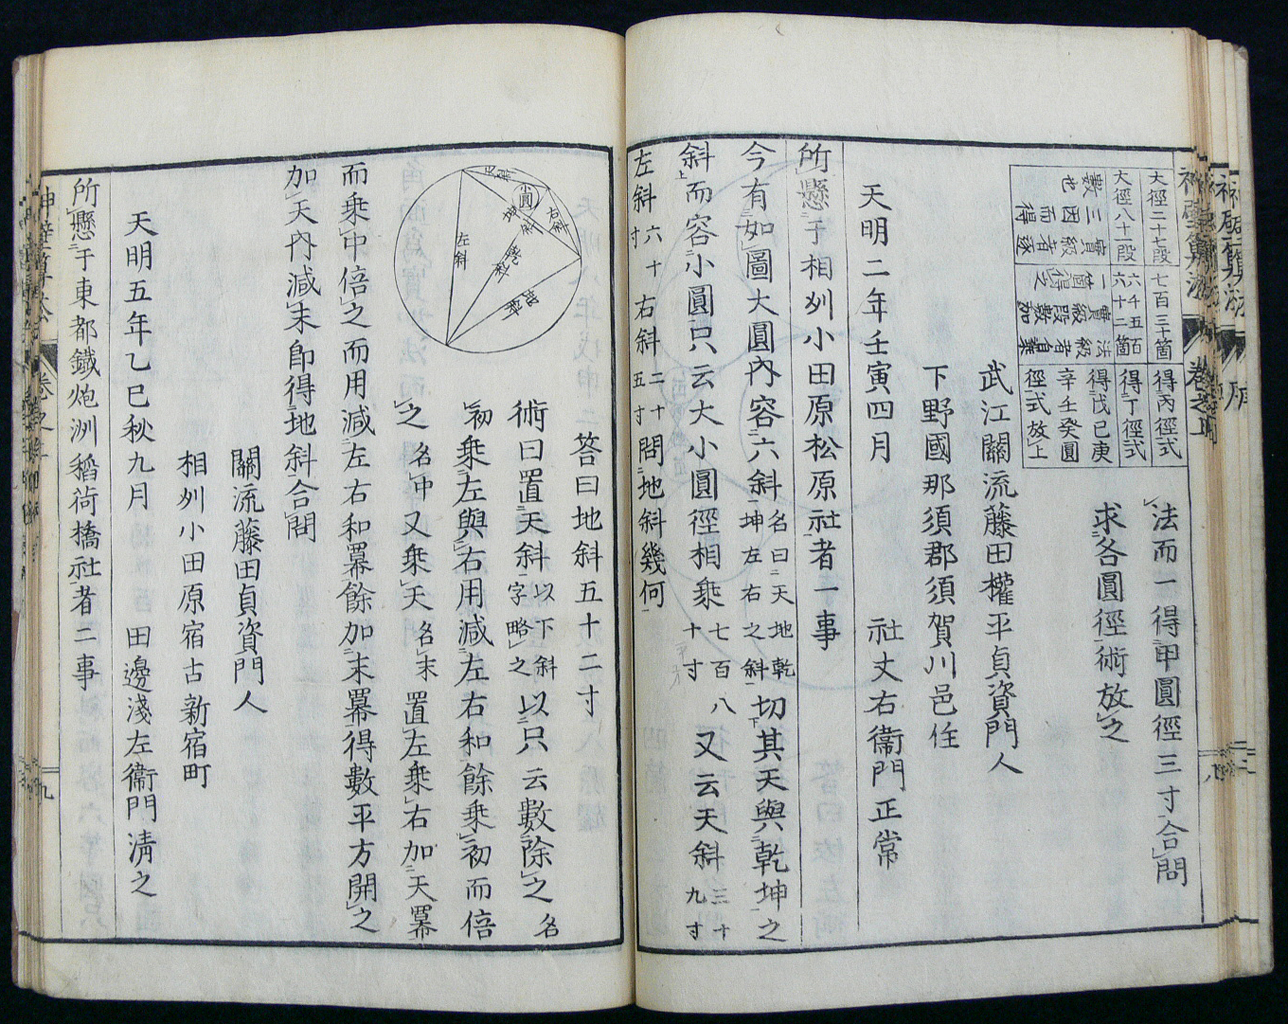 神壁算法
大徑二十七段 七百三十箇 得丙徑式
大徑八十一段 六千五百六十二箇 得丁徑式
數三實級 一箇實級法級 得戊己庚
也因而得逐 得之段數加 辛壬癸圓徑式放上
法而一得甲圓徑三寸合問
求各圓徑術放之
武江關流藤田權平貞資門人
下野國那須郡須賀川邑住
天明二年壬寅四月 社丈右衞門正常
所懸于相刕小田原松原社者一事
今有如圖大圓內容六斜名曰天地乾坤左右之斜切其天與乾坤之
斜而容小圓只云大小圓徑相乘七百八十寸又云天斜三十九寸
左斜六十寸右斜二十五寸問地斜幾何
小圓
左斜
右斜
答曰地斜五十二寸
術曰置天斜以下斜字略之以只云數除之名
初乘左與右用減左右和餘乘初而倍
之名中又乘天名末置左乘右加天冪
而乘中倍之而用減左右和冪餘加末冪得數平方開之
加天內減末卽得地斜合問
關流藤田貞資門人
相刕小田原宿古新宿町
天明五年乙巳秋九月 田邊淺左衞門淸之
所懸于東都鐵炮洲稻荷橋社者二事
神壁算法
九